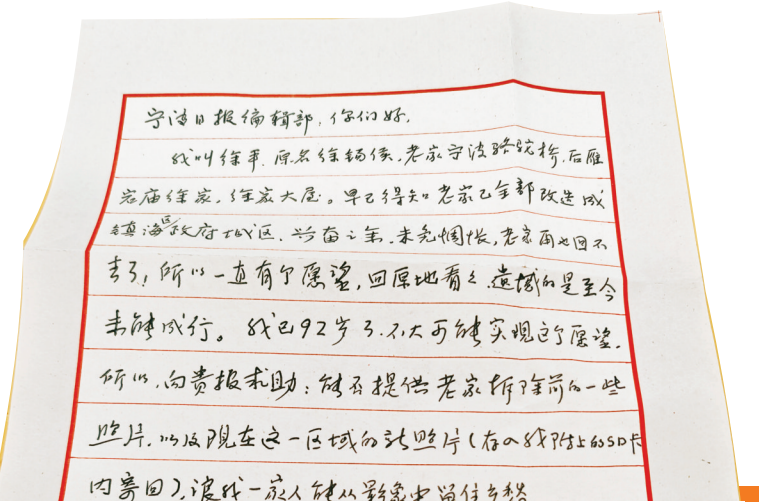 宁波日报编辑部，你们好，
我叫徐平，原名徐锡侯，老家宁波骆驼桥，后雁
宕庙徐家，徐家大屋。早已得知老家已全部改造成
镇海区政府城区，兴奋之余，未免惆怅，老家再也回不
去了！所以一直有个愿望，回原地看看，遗憾的是至今
未能成行。我已92岁了，不大可能实现这个愿望，
所以，向贵报求助：能否提供老家拆除前的一些
照片，以及现在这一区域的新照片（存入我附上的SD卡
内寄回），让我一家人能从影像中留住乡愁